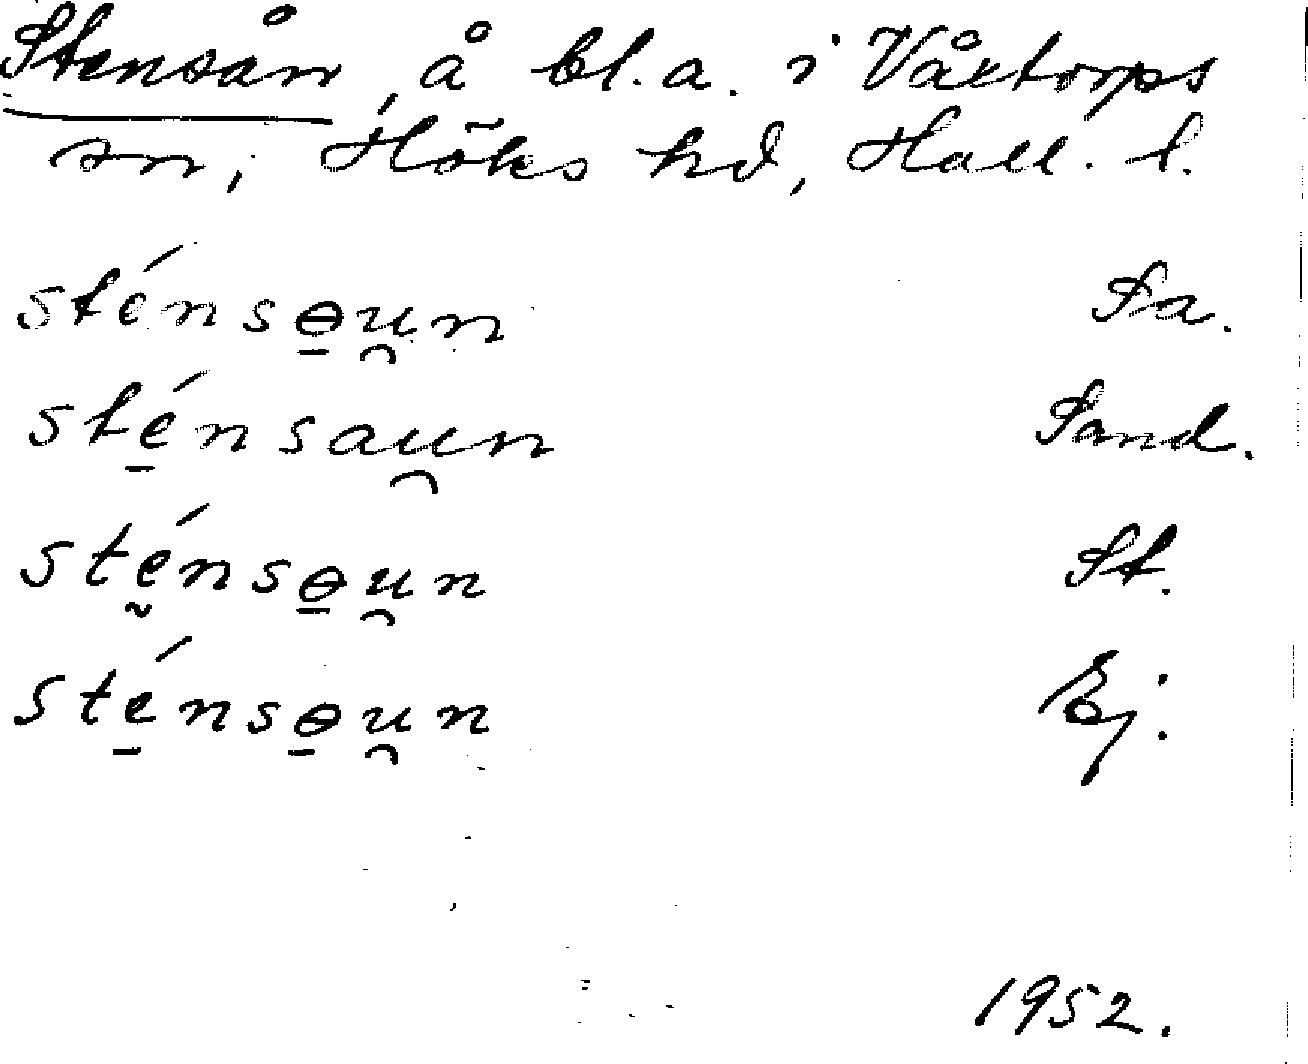 Stensån, å bl.a. i Våxtorps
sn, Höks hd, Hall. l.
sténsɵ̱u̯n Sa.
sté̱nsau̯n Sand.
stḛ́nsɵ̱u̯n St.
sté̱nsɵ̱u̯n Ej.
1952.